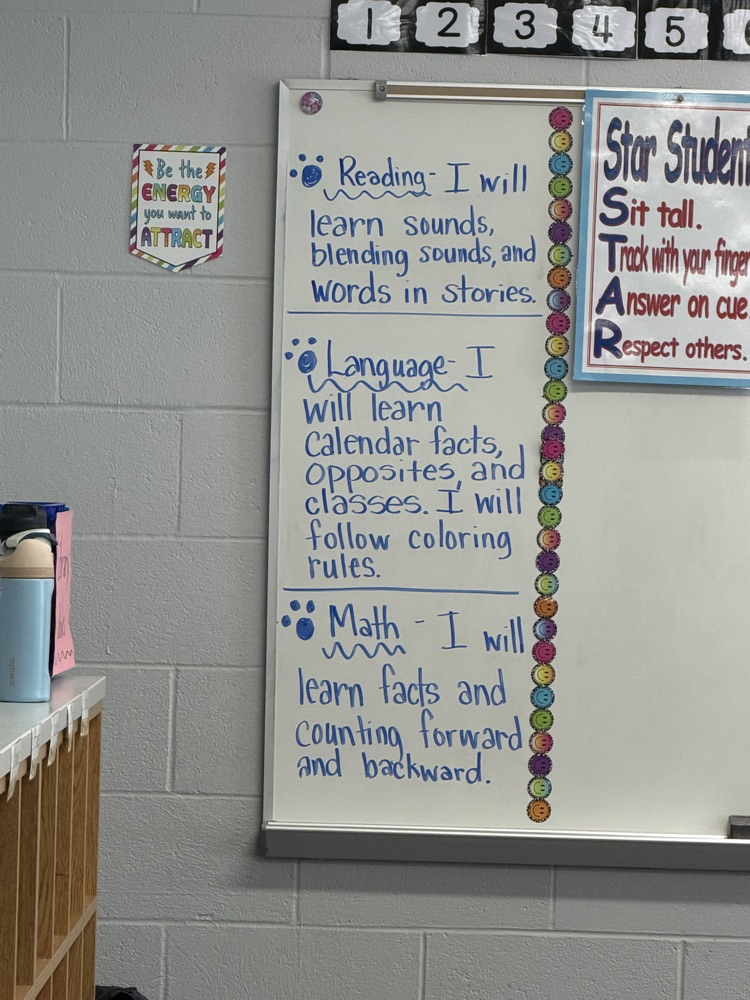 1 2 3 4 5
Be the
ENERGY
you want to
ATTRACT
Reading - I will
learn sounds,
blending sounds, and
words in stories.
Language - I
will learn
calendar facts,
opposites, and
classes. I will
follow coloring
rules.
Math - I will
learn facts and
counting forward
and backward.
Star Student
Sit tall.
Track with your finger
Answer on cue.
Respect others.
owala